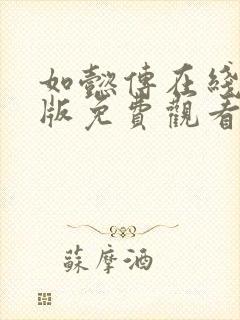 如懿傳在綫
版免費觀看
蘇摩酒